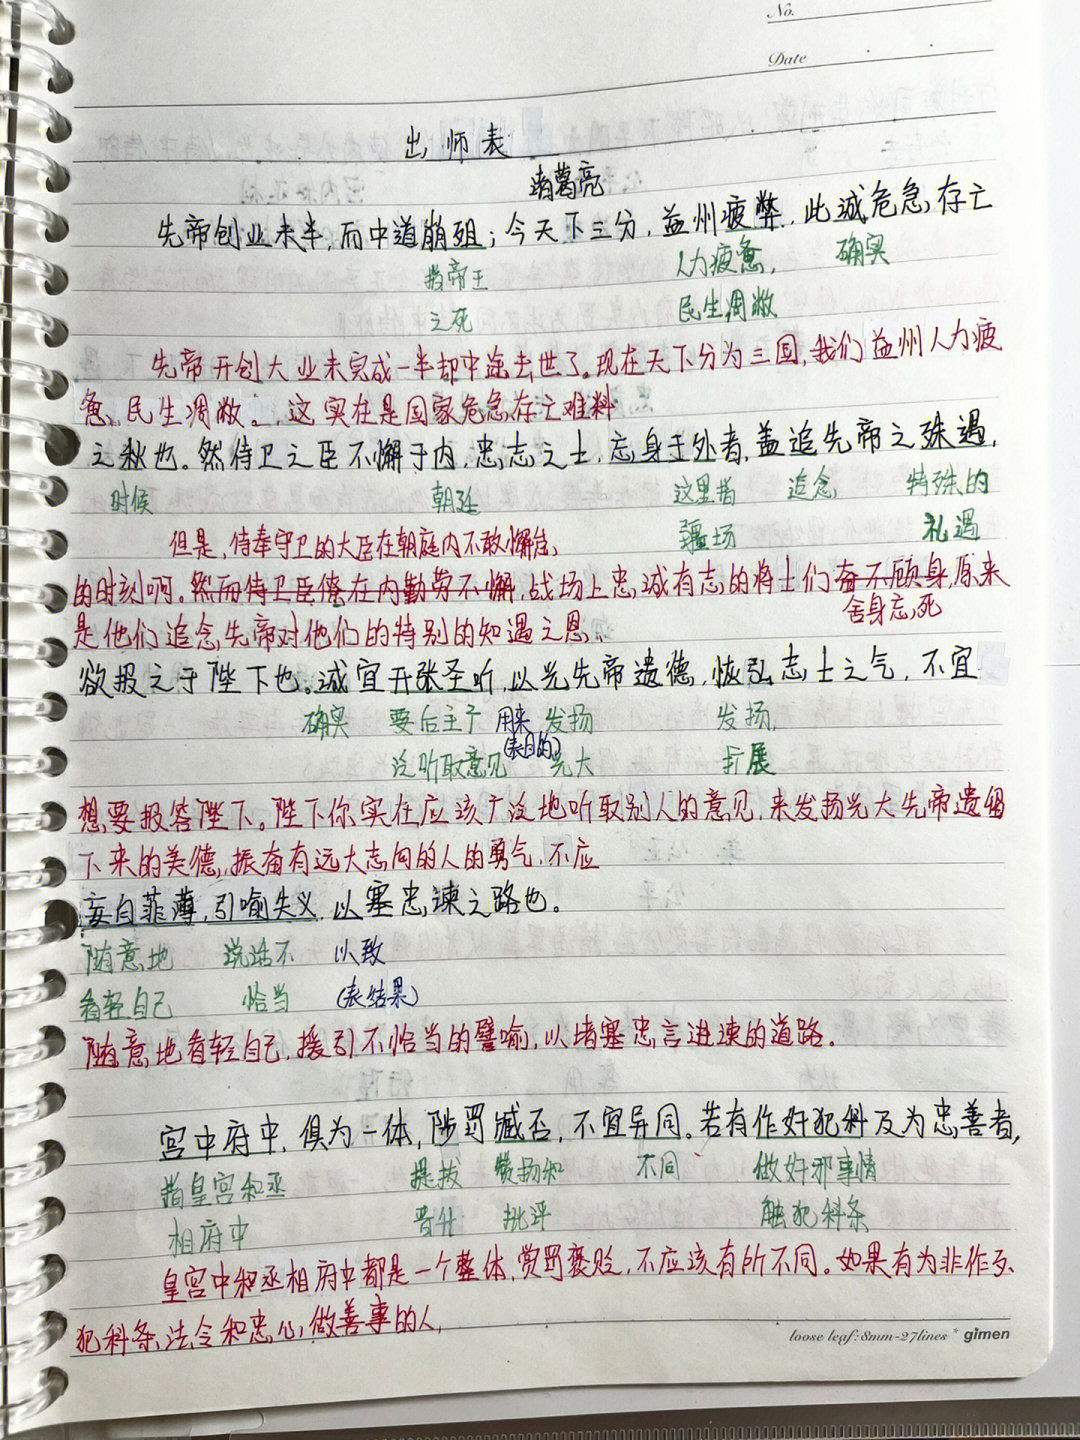 No.
Date
出师表
诸葛亮
先帝创业未半,而中道崩殂;今天下三分,益州疲弊,此诚危急存亡
指帝王 人力疲惫, 确实
之死 民生凋敝
先帝开创大业未完成一半却中途去世了。现在天下分为三国,我们益州人力疲
惫、民生凋敝。,这实在是国家危急存亡难料
之秋也。然侍卫之臣不懈于内,忠志之士,忘身于外者,盖追先帝之殊遇,
时候 朝廷 这里指 追念 特殊的
疆场 礼遇
但是,侍奉守卫的大臣在朝庭内不敢懈怠,
的时刻啊。然而侍卫臣僚在内勤劳不懈,战场上忠诚有志的将士们奋不顾身,原来
舍身忘死
是他们追念先帝对他们的特别的知遇之恩、
欲报之于陛下也。诚宜开张圣听,以光先帝遗德,恢弘志士之气,不宜
确实 要后主广 用来 发扬 发扬,
(表目的)
泛听取意见 光大 扩展
想要报答陛下。陛下你实在应该广泛地听取别人的意见,来发扬光大先帝遗留
下来的美德,振奋有远大志向的人的勇气,不应
妄自菲薄,引喻失义,以塞忠谏之路也。
随意地 说话不 以致
看轻自己 恰当 (表结果)
随意地看轻自己,援引不恰当的譬喻,以堵塞忠言进谏的道路。
宫中府中,俱为一体,陟罚臧否,不宜异同。若有作奸犯科及为忠善者,
指皇宫和丞 提拔 赞扬和 不同 做奸邪事情
相府中 晋升 批评 触犯科条
皇宫中和丞相府中都是一个整体,赏罚褒贬,不应该有所不同。如果有为非作歹、
犯科条、法令和忠心,做善事的人,
loose leaf:8mm-27lines * gimen